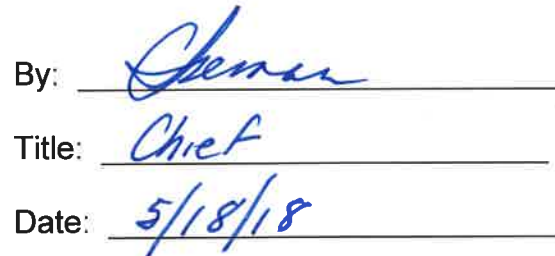 By:
Title: Chief
Date: 5/18/18